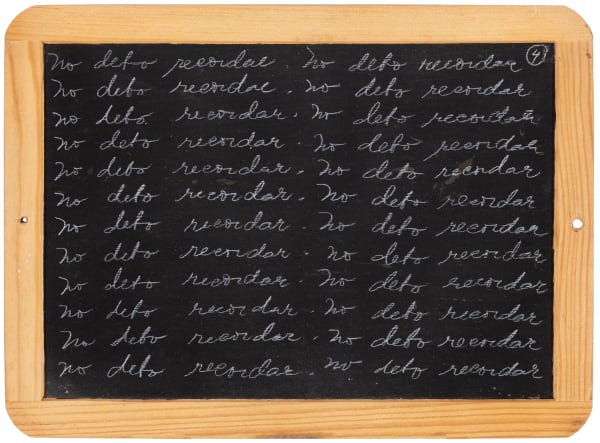 no debo recordar. no debo recordar 4
no debo recordar. no debo recordar
no debo recordar. no debo recordar
no debo recordar. no debo recordar
no debo recordar. no debo recordar
no debo recordar. no debo recordar
no debo recordar. no debo recordar
no debo recordar. no debo recordar
no debo recordar. no debo recordar
no debo recordar. no debo recordar
no debo recordar. no debo recordar
no debo recordar. no debo recordar